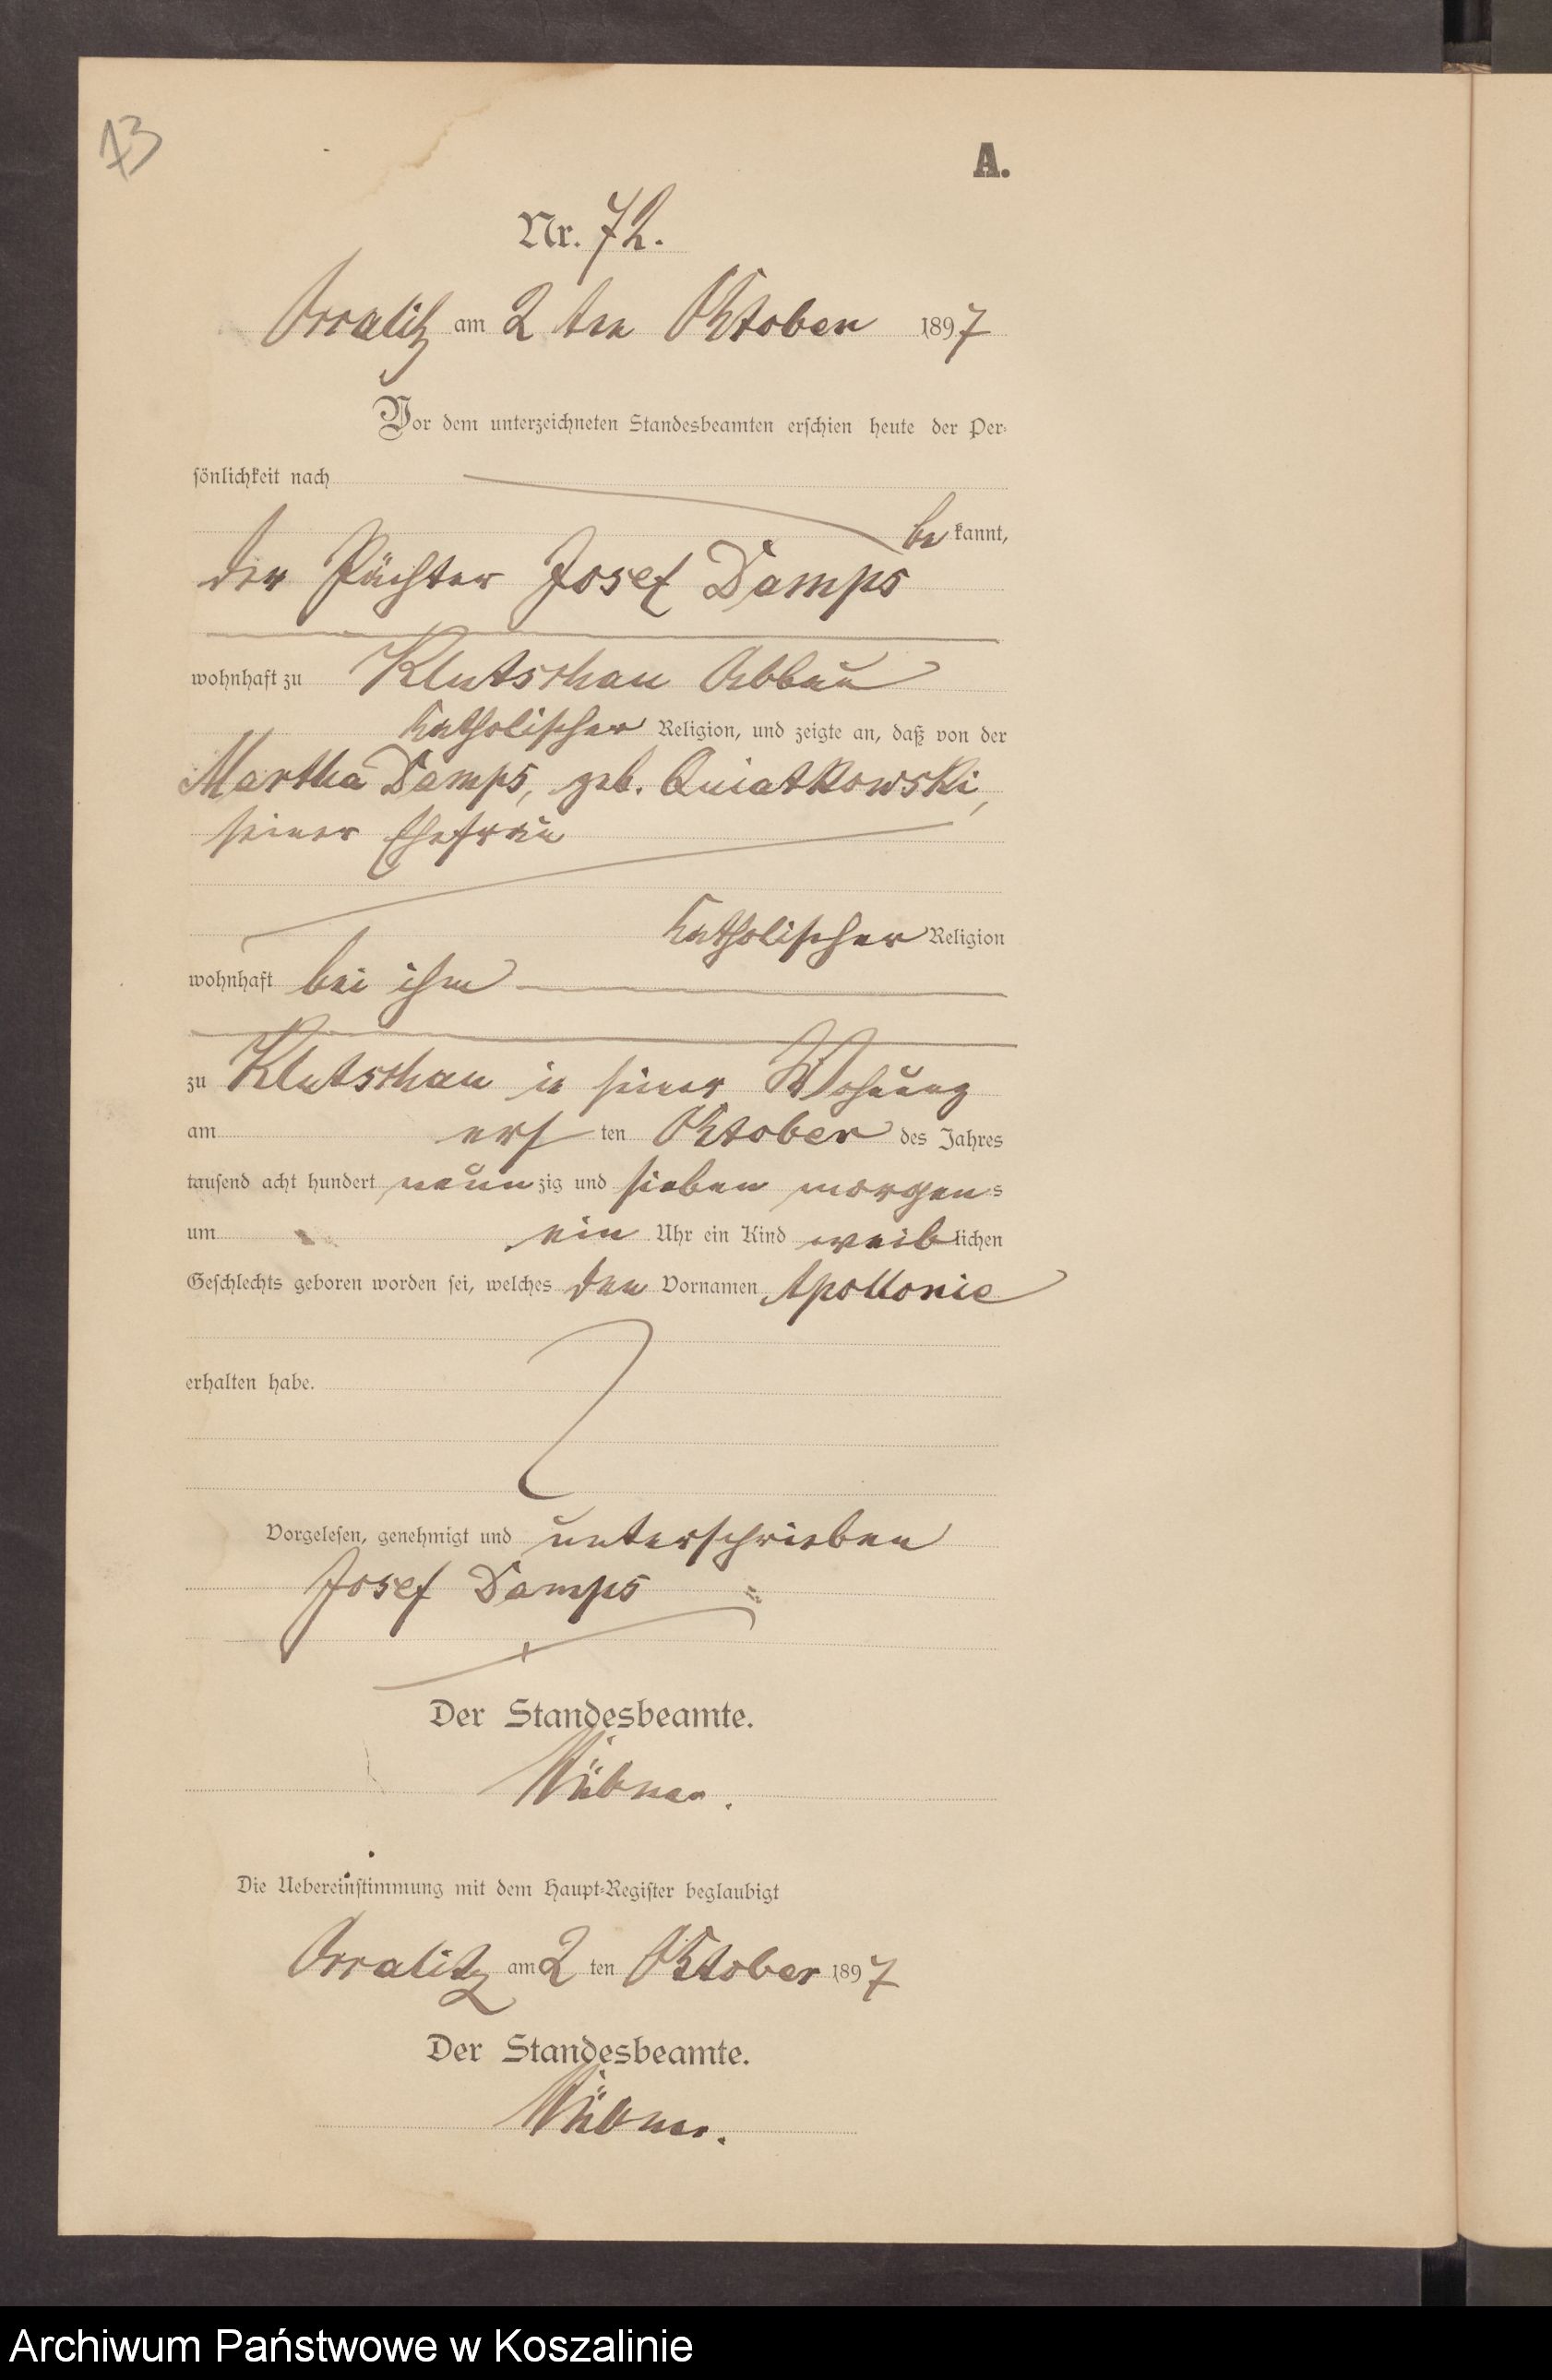 73
A.
Nr. 72.
Occalitz am 2 ten Oktober 1897
Vor dem unterzeichneten Standesbeamten erschien heute der Per-
sönlichkeit nach
be kannt,
der Pächter Josef Damps
wohnhaft zu Klutschau Abbau
katholischer Religion, und zeigte an, daß von der
Martha Damps, geb. Quiatkowski,
seiner Ehefrau
katholischer Religion
wohnhaft bei ihm
zu Klutschau in seiner Wohnung
am ersten Oktober des Jahres
tausend acht hundert neunzig und sieben morgens
um ein Uhr ein Kind weiblichen
Geschlechts geboren worden sei, welches den Vornamen Apollonie
erhalten habe.
Vorgelesen, genehmigt und unterschrieben
Josef Damps
Der Standesbeamte.
Die Uebereinstimmung mit dem Haupt-Register beglaubigt
Occalitz am 2 ten Oktober 1897
Der Standesbeamte.
Archiwum Państwowe w Koszalinie